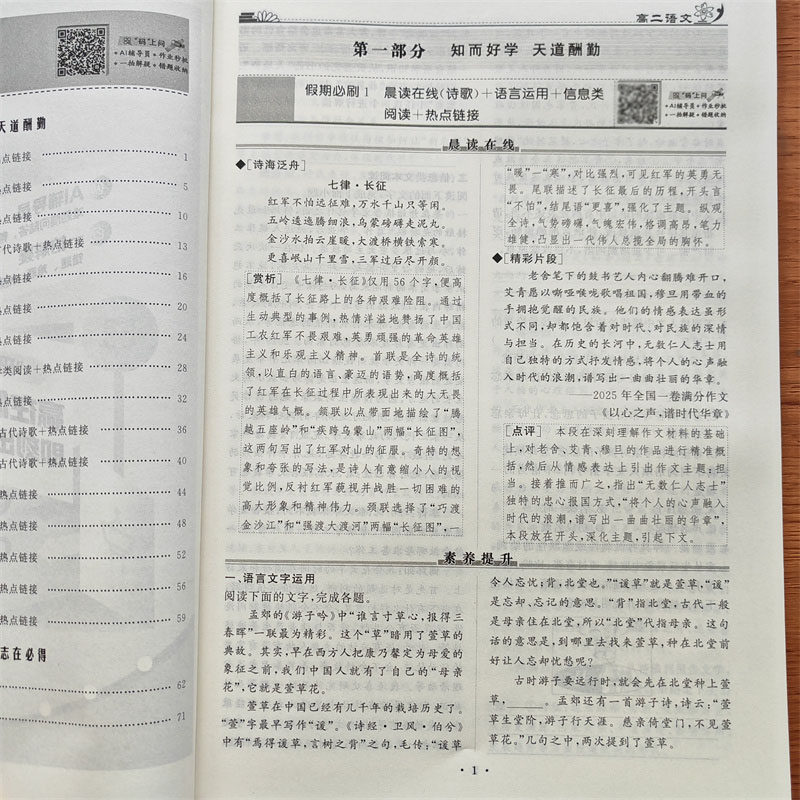 "码"上问
+AI辅导员+作业秒批
+一拍解疑+错题收纳
天道酬勤
点链接 1
热点链接 5
热点链接 10
代诗歌+热点链接 13
热点链接 16
热点链接 20
热点链接 24
类阅读+热点链接 28
热点链接 32
古代诗歌+热点链接 36
古代诗歌+热点链接 40
热点链接 44
热点链接 48
热点链接 52
热点链接 56
热点链接 59
志在必得
62
71
高二语文
第一部分 知而好学 天道酬勤
假期必刷1 晨读在线(诗歌)+语言运用+信息类
阅读+热点链接
"码"上问
+AI辅导员+作业秒批
+一拍解疑+错题收纳
晨读在线
◆[诗海泛舟]
七律·长征
红军不怕远征难,万水千山只等闲。
五岭逶迤腾细浪,乌蒙磅礴走泥丸。
金沙水拍云崖暖,大渡桥横铁索寒。
更喜岷山千里雪,三军过后尽开颜。
[赏析] 《七律·长征》仅用56个字,便高
度概括了长征路上的各种艰难险阻。通过
生动典型的事例,热情洋溢地赞扬了中国
工农红军不畏艰难,英勇顽强的革命英雄
主义和乐观主义精神。首联是全诗的统
领,以直白的语言、豪迈的语势,高度概括
了红军在长征过程中所表现出来的大无畏
的英雄气概。颔联以点带面地描绘了"腾
越五座岭"和"疾跨乌蒙山"两幅"长征图",
这两句写出了红军对山的征服。奇特的想
象和夸张的写法,是诗人有意缩小人的视
觉比例,反衬红军藐视并战胜一切困难的
高大形象和精神伟力。颈联选择了"巧渡
金沙江"和"强渡大渡河"两幅"长征图",一
"暖"一"寒",对比强烈,可见红军的英勇无
畏。尾联描述了长征最后的历程,开头言
"不怕",结尾语"更喜",强化了主题。纵观
全诗,气势磅礴,气魄宏伟,格调高昂,笔力
雄健,凸显出一代伟人总揽全局的胸怀。
◆[精彩片段]
老舍笔下的鼓书艺人内心翻腾难开口,
艾青愿以嘶哑喉咙歌唱祖国,穆旦用带血的
手拥抱觉醒的民族。他们的情感表达虽形
式不同,却都饱含着对时代、对民族的深情
与担当。在历史的长河中,无数仁人志士用
自己独特的方式抒发情感,将个人的心声融
入时代的浪潮,谱写出一曲曲壮丽的华章。
——2025年全国一卷满分作文
《以心之声,谱时代华章》
[点评] 本段在深刻理解作文材料的基础
上,对老舍、艾青、穆旦的作品进行精准概
括,然后从情感表达上引出作文主题:担
当。接着推而广之,指出"无数仁人志士"
独特的忠心报国方式,"将个人的心声融入
时代的浪潮,谱写出一曲曲壮丽的华章",
本段放在开头,深化主题,引起下文。
素养提升
一、语言文字运用
阅读下面的文字,完成各题。
孟郊的《游子吟》中"谁言寸草心,报得三
春晖"一联最为精彩。这个"草"暗用了萱草的
典故。其实,早在西方人把康乃馨定为母爱的
象征之前,我们中国人就有了自己的"母亲
花",它就是萱草花。
萱草在中国已经有几千年的栽培历史了。
"萱"字最早写作"谖"。《诗经·卫风·伯兮》
中有"焉得谖草,言树之背"之句,毛传:"谖草
令人忘忧;背,北堂也。""谖草"就是萱草,"谖"
是忘却、忘记的意思。"背"指北堂,古代一般
是母亲住在北堂,所以"北堂"代指母亲。这句
话的意思是,到哪里去找来萱草,种在北堂前
好让人忘却忧愁呢?
古时游子要远行时,就会先在北堂种上萱
草,____。孟郊还有一首游子诗,诗云:"萱
草生堂阶,游子行天涯。慈亲倚堂门,不见萱
草花。"几句之中,两次提到了萱草。
·1·